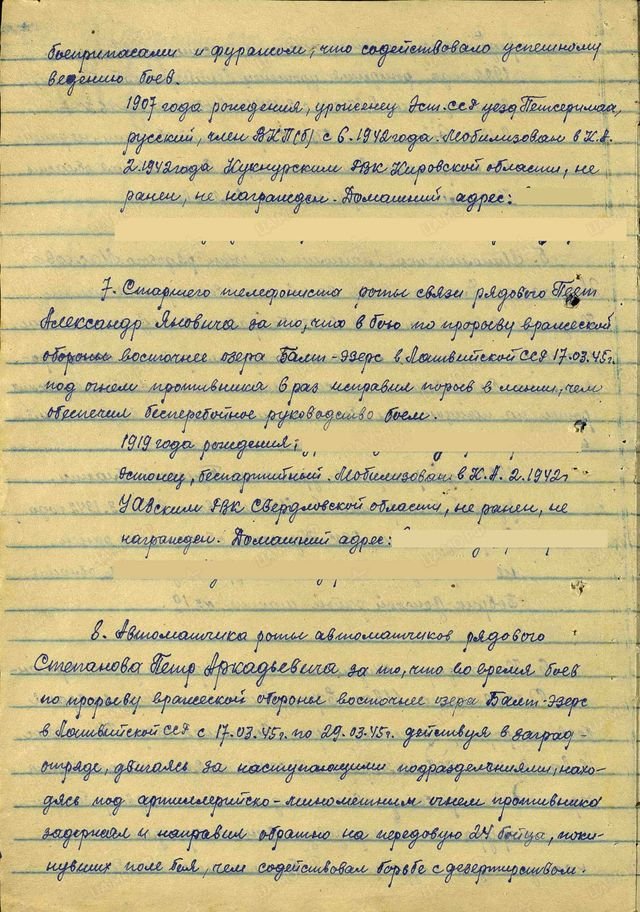 боеприпасами и фуражом, что содействовало успешному
ведению боев.
1907 года рождения, уроженец Эст. ССР уезд Петсеримаа,
русский, член ВКП(б) с 6.1942 года. Мобилизован в К.А.
2.1942 года Кукнурским РВК Кировской области, не
ранен, не награжден. Домашний адрес:
7. Старшего телефониста роты связи рядового
Александр Яновича за то, что в бою по прорыву вражеской
обороны восточнее озера Балт-Эзерс в Латвийской ССР 17.03.45г.
под огнем противника 8 раз исправил порыв в линии, чем
обеспечил бесперебойное руководство боем.
1919 года рождения,
Эстонец, беспартийный. Мобилизован в К.А. 2.1942г
РВК Свердловской области, не ранен, не
награжден. Домашний адрес:
8. Автоматчика роты автоматчиков рядового
Степанова Петр Аркадьевича за то, что во время боев
по прорыву вражеской обороны восточнее озера Балт-Эзерс
в Латвийской ССР с 17.03.45г. по 29.03.45г. действуя в заград-
отряде, двигаясь за наступающими подразделениями, нахо-
дясь под артиллерийско-минометным огнем противника
задержал и направил обратно на передовую 24 бойца, поки-
нувших поле боя, чем содействовал борьбе с дезертирством.